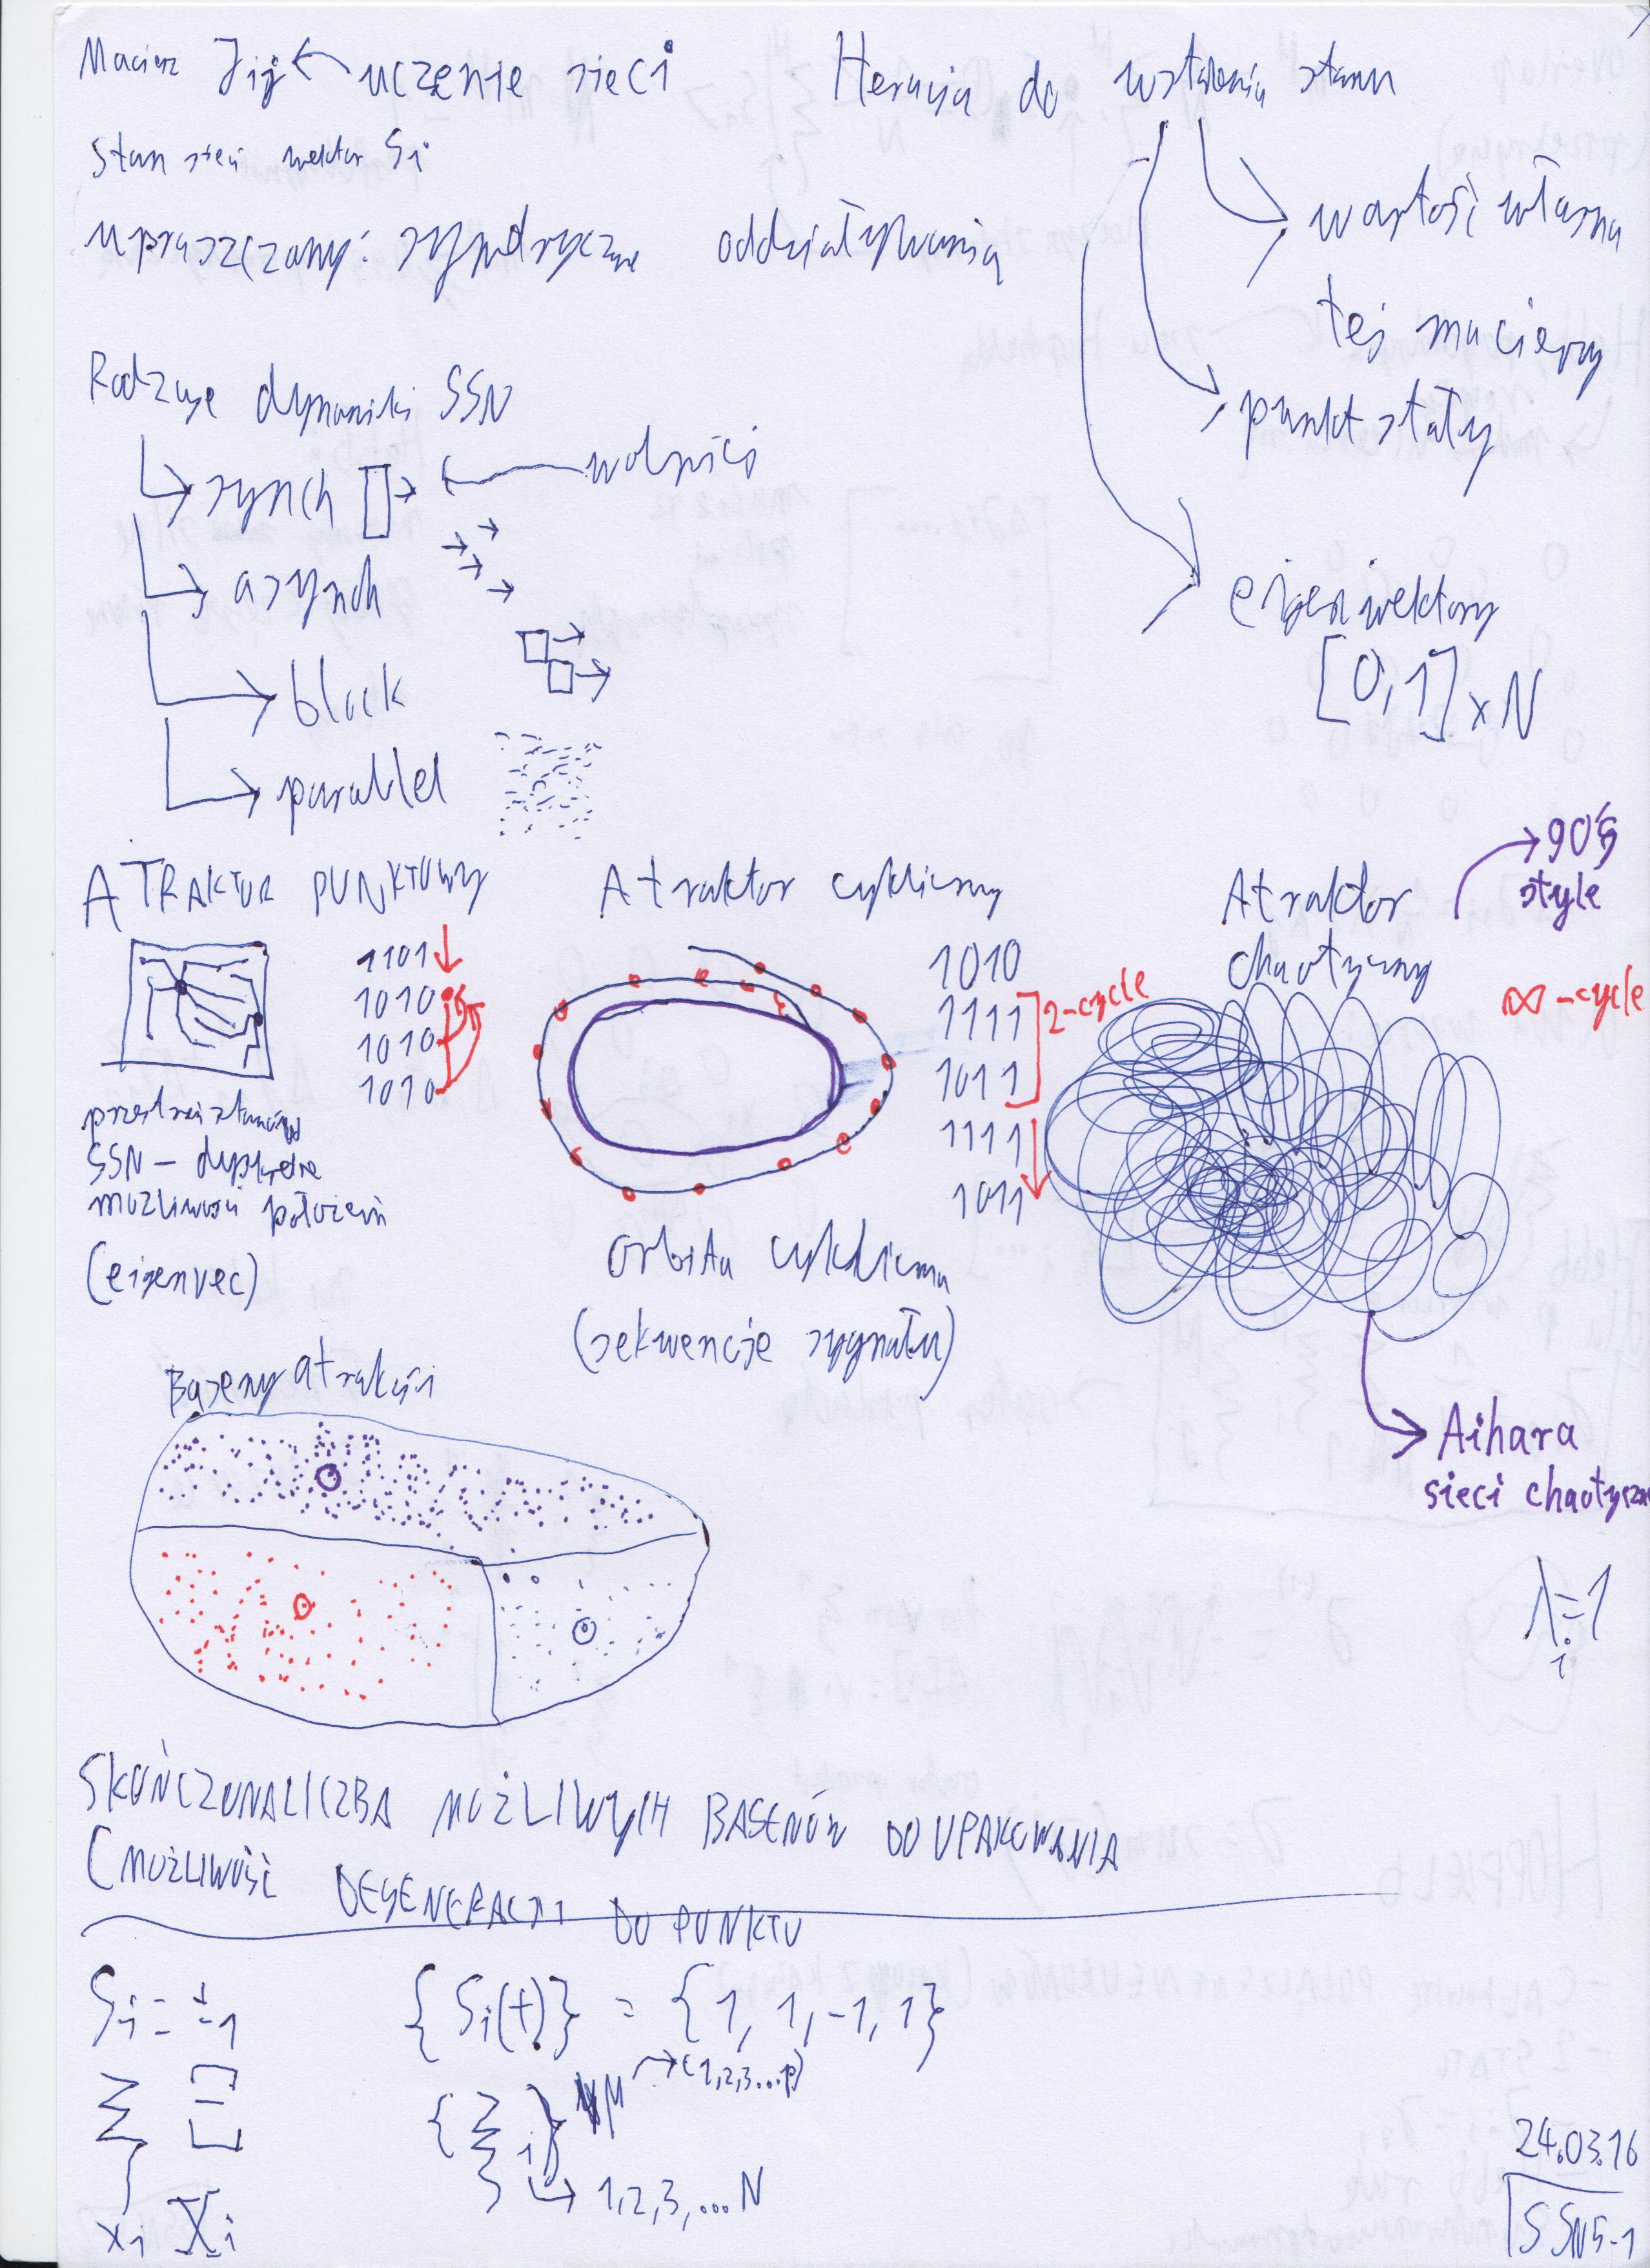 Macierz Jij ← uczenie sieci
Iteracja do ustalenia stanu
Stan sieci wektor Si
upraszczamy: symetryczne oddziaływania
wartość własna
tej macierzy
punkt stały
eigenwektory
[0,1]xN
Rodzaje dynamiki SSN
synch
wolności
asynch
block
parallel
ATRAKTOR PUNKTOWY
1101
1010
1010
1010
przestrzeń stanów
SSN - dyskretne
możliwości położeń
(eigenvec)
Atraktor cykliczny
1010
1111
1011
1111
1011
2-cycle
Orbita cykliczna
(sekwencje sygnału)
Atraktor
chaotyczny
90's
style
∞-cycle
Aihara
sieci chaotyczne
Baseny atrakcji
λ=1
i
SKOŃCZONA LICZBA MOŻLIWYCH BASENÓW DO UPAKOWANIA
(MOŻLIWOŚĆ DEGENERACJI DO PUNKTU
Si = ±1
{Si(t)} = {1, 1, -1, 1}
ξ Ξ
{ξi}μ → (1,2,3...p)
↳ 1,2,3,...N
xi Xi
24.03.16
SSN5-1